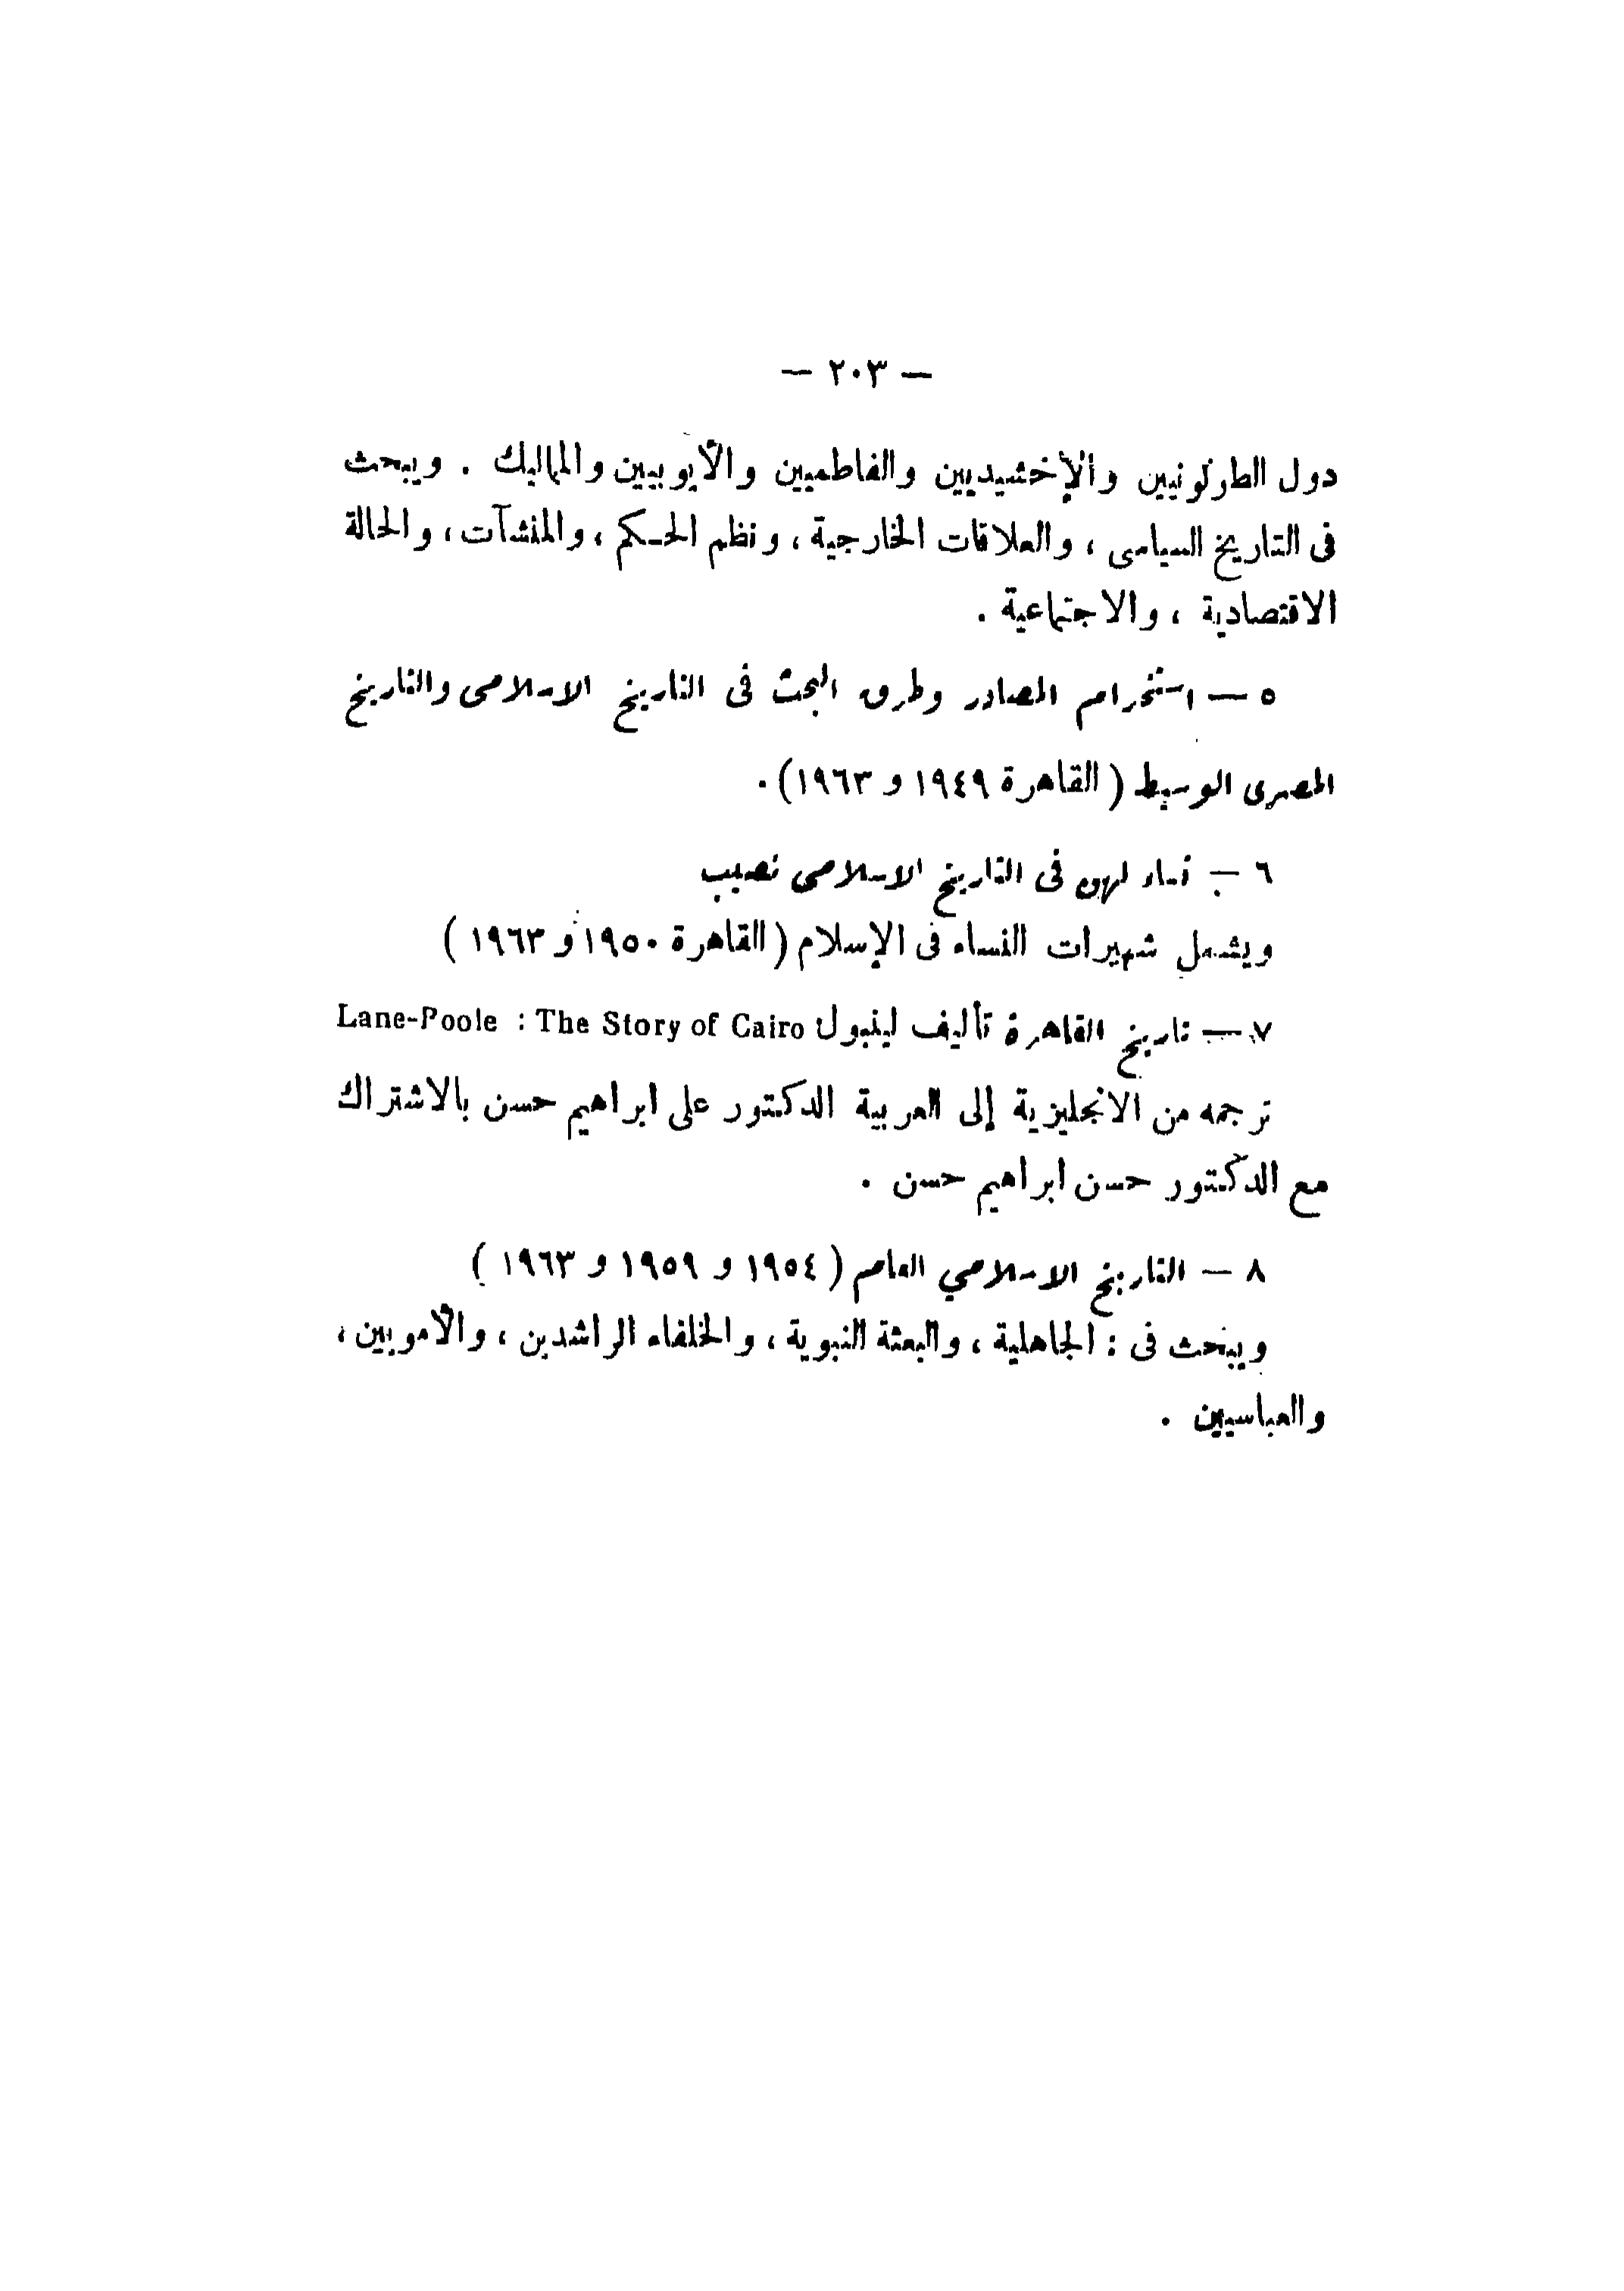 — ٢٠٣ —
دول الطولونيين والإخشيديين والفاطميين والأيوبيين والمماليك . ويبحث
فى التاريخ السياسى ، والعلاقات الخارجية ، ونظم الحكم ، والمنشآت ، والحالة
الاقتصادية ، والاجتماعية .
٥ — استخدام المصادر وطرق البحث فى التاريخ الاسلامى والتاريخ
المصرى الوسيط ( القاهرة ١٩٤٩ و ١٩٦٣) .
٦ — نساء لهن فى التاريخ الاسلامى نصيب
ويشمل شهيرات النساء فى الإسلام ( القاهرة ١٩٥٠ و ١٩٦٣ )
٧ — تاريخ القاهرة تأليف لينبول Lane-Poole : The Story of Cairo
ترجمه من الانجليزية إلى العربية الدكتور على ابراهيم حسن بالاشتراك
مع الدكتور حسن ابراهيم حسن .
٨ — التاريخ الاسلامي العام ( ١٩٥٤ و ١٩٥٩ و ١٩٦٣ )
ويبحث فى : الجاهلية ، والبعثة النبوية ، والخلفاء الراشدين ، والأمويين ،
والعباسيين .